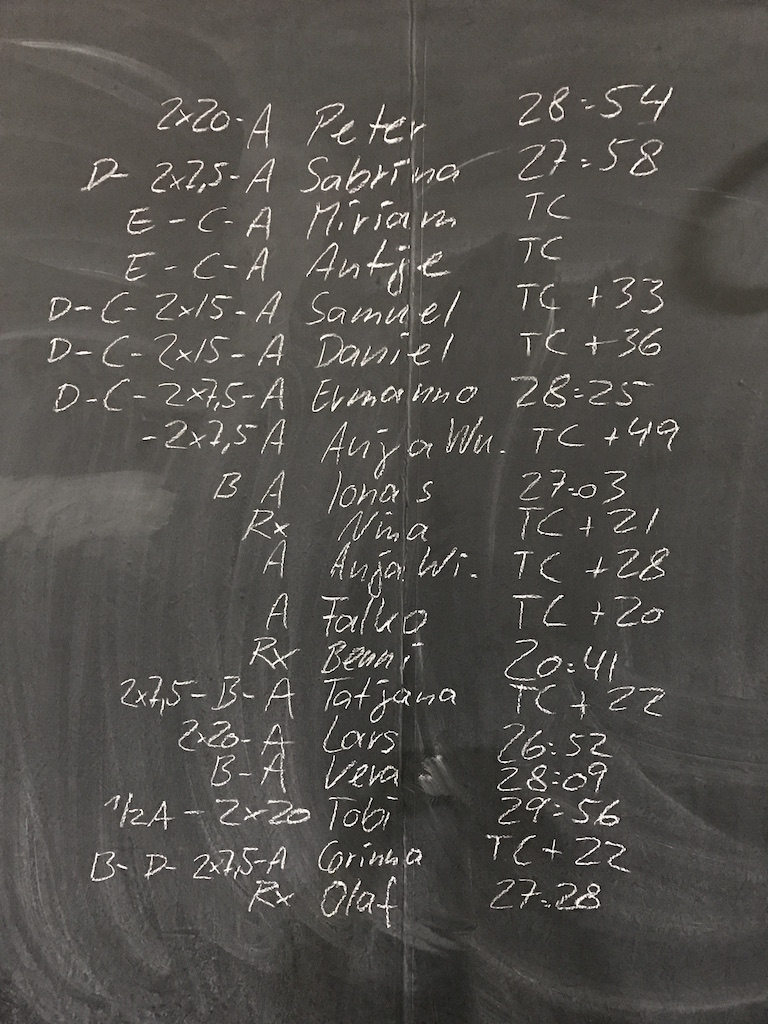 2x20-A Peter 28:54
D- 2x7,5-A Sabrina 27:58
E-C-A Miriam TC
E-C-A Antje TC
D-C-2x15-A Samuel TC +33
D-C-2x15-A Daniel TC +36
D-C-2x7,5-A Ermanno 28:25
-2x7,5 A Anja Wu. TC +49
B A Jonas 27:03
Rx Nina TC +21
A Anja Wi. TC +28
A Falko TC +20
Rx Benni 20:41
2x7,5-B-A Tatjana TC +22
2x20-A Lars 26:52
B-A Vera 28:09
1/2A-2x20 Tobi 29:56
B-D-2x7,5-A Corinna TC +22
Rx Olaf 27:28